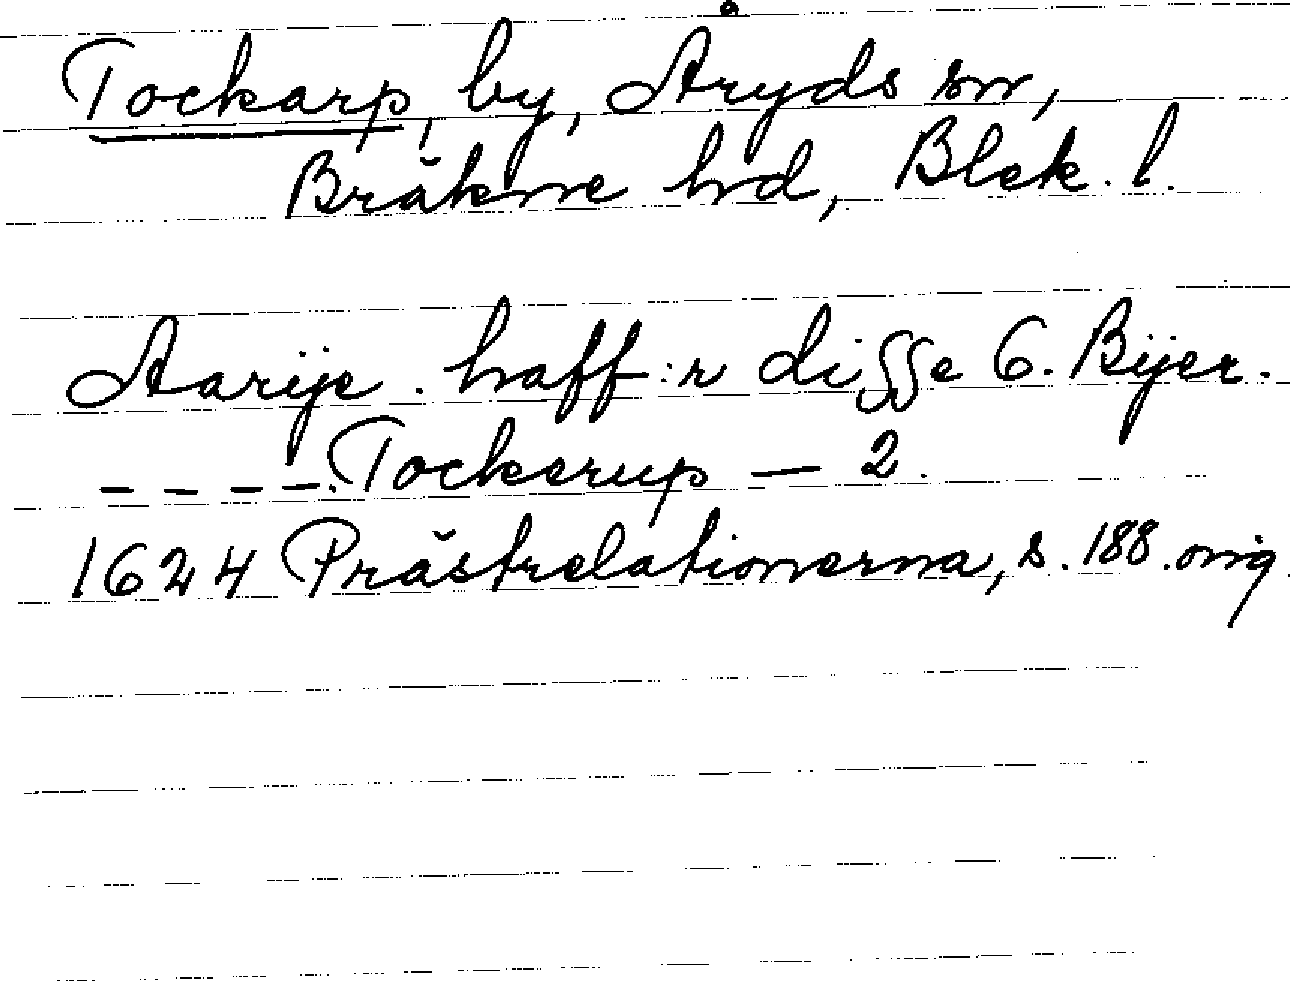 Tockarp, by, Åryds sn,
Bräkne hd, Blek. l.
Aarije. haff:r disse 6. Bijer.
– – – –. Tockerup – 2.
1624 Prästrelationerna, s. 188. orig.